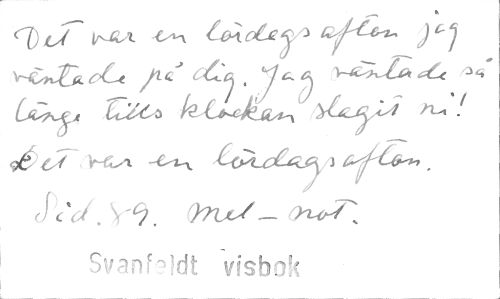 Det var en lördagsafton jag
väntade på dig. Jag väntade så
länge tills klockan slagit ni!
Det var en lördagsafton.
Sid. 89. Mel-not.
Svanfeldt visbok